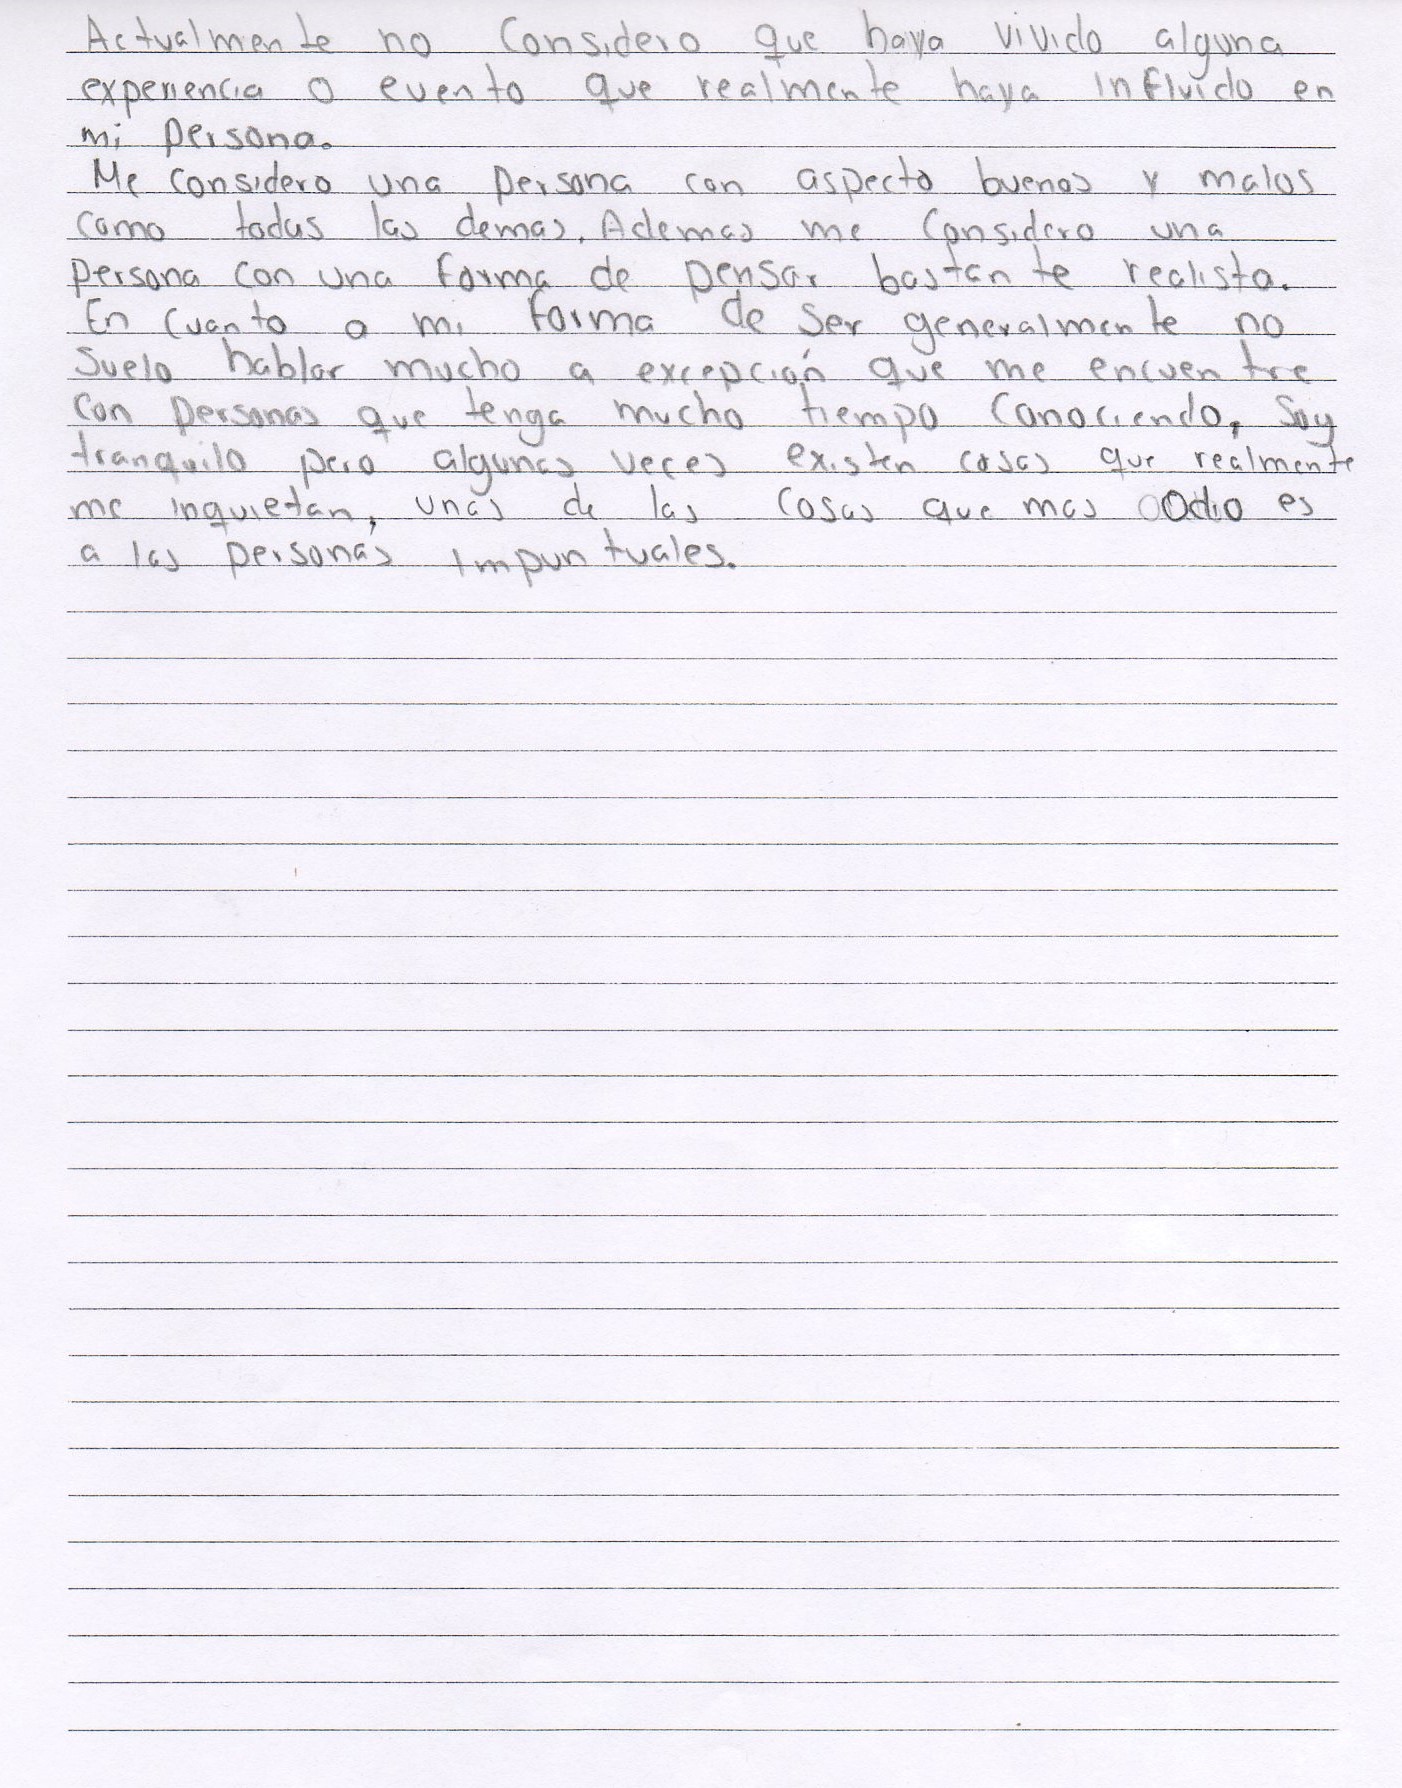 Actualmente no considero que haya vivido alguna
experiencia o evento que realmente haya influido en
mi persona.
Me considero una persona con aspecto buenos y malos
como todas las demas. Ademas me considero una
persona con una forma de pensar bastante realista.
En cuanto a mi forma de ser generalmente no
suelo hablar mucho a excepción que me encuentre
con personas que tenga mucho tiempo conociendo, Soy
tranquilo pero algunas veces existen cosas que realmente
me inquietan, unas de las cosas que mas odio es
a las personas impuntuales.